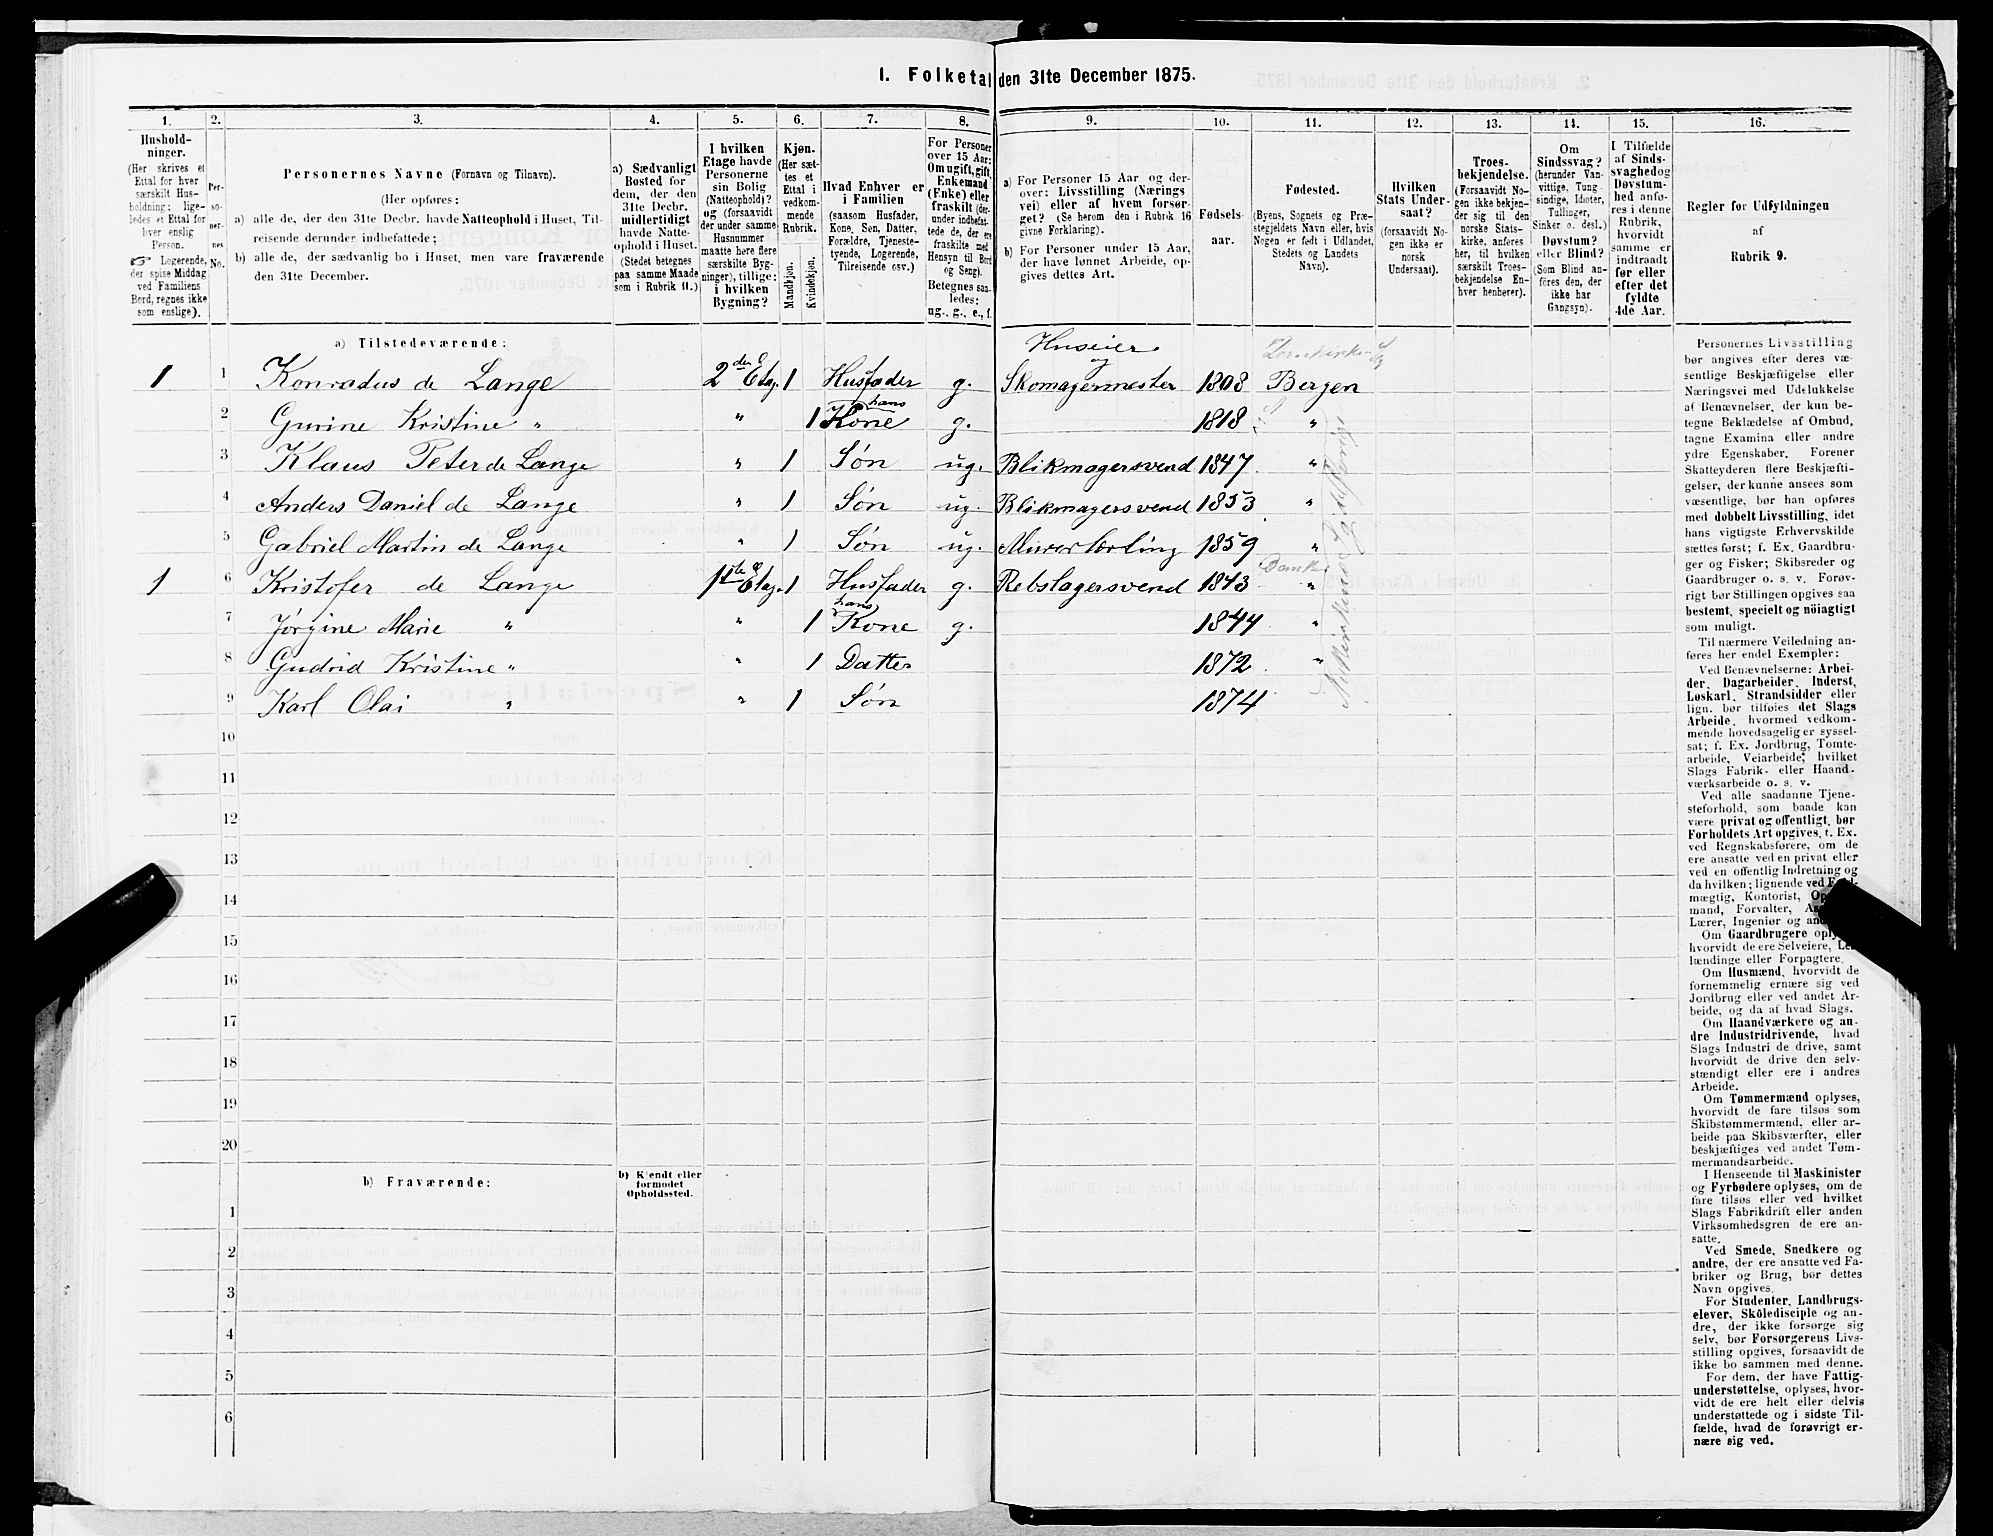 1. Folketal den 31te December 1875.
1. 2. 3. 4. 5. 6. 7. 8. 9. 10. 11. 12. 13. 14. 15. 16.
Hushold-
ninger.
(Her skrives et
Ettal for hver
særskilt Hus-
holdning; lige-
ledes et Ettal for
hver enslig
Person.
☞ Logerende,
der spise Middag
ved Familiens
Bord, regnes ikke
som enslige).
Per-
so-
ner-
nes
No.
Personernes Navne (Fornavn og Tilnavn).
(Her opføres:
a) alle de, der den 31te Decbr. havde Natteophold i Huset, Til-
reisende derunder indbefattede;
b) alle de, der sædvanlig bo i Huset, men vare fraværende
den 31te December.
a) Sædvanligt
Bosted for
dem, der den
31te Decbr.
midlertidigt
havde Natte-
ophold i Huset.
(Stedet betegnes
paa samme Maade
som i Rubrik 11.)
I hvilken
Etage havde
Personerne
sin Bolig
(Natteophold)?
og (forsaavidt
der under samme
Husnummer
maatte høre flere
særskilte Byg-
ninger), tillige:
i hvilken
Bygning?
Kjøn.
(Her sæt-
tes et
Ettal i
vedkom-
mende
Rubrik.
Mandkjøn.
Kvindekjøn.
Hvad Enhver er
i Familien
(saasom Husfader,
Kone, Søn, Datter,
Forældre, Tjeneste-
tyende, Logerende,
Tilreisende osv.)
For Personer
over 15 Aar:
Om ugift, gift,
Enkemand
(Enke) eller
fraskilt (der-
under indbefat-
tede de, der ere
fraskilte med
Hensyn til Bord
og Seng).
Betegnes saa-
ledes:
ug., g., e., f.
a) For Personer 15 Aar og der-
over: Livsstilling (Nærings
vei) eller af hvem forsør-
get? (Se herom den i Rubrik 16
givne Forklaring).
b) For Personer under 15 Aar,
der have lønnet Arbeide, op-
gives dettes Art.
Fødsels-
aar.
Fødested.
(Byens, Sognets og Præ-
stegjeldets Navn eller, hvis
Nogen er født i Udlandet,
Stedets og Landets
Navn).
Hvilken
Stats Under-
saat?
(forsaavidt No-
gen ikke er
norsk
Undersaat).
Troes-
bekjendelse.
(Forsaavidt No-
gen ikke bekjen-
der sig til den
norske Stats-
kirke, anføres
her, til hvilken
særskilt Troes-
bekjendelse En-
hver henhører).
Om
Sindssvag?
(herunder Van-
vittige, Tung-
sindige, Idioter,
Tullinger,
Sinker o. desl.)
Døvstum?
eller Blind?
(Som Blind an-
føres den, der
ikke har
Gangsyn).
I Tilfælde
af Sinds-
svaghed og
Døvstum-
hed anfø-
res i denne
Rubrik,
hvorvidt
samme er
indtraadt
før eller
efter det
fyldte
4de Aar.
Regler før Udfyldningen
af
Rubrik 9.
a) Tilstedeværende:
Huseier
og
1 1 Konradus de Lange 2den Etag. 1 Husfader g. Skomagermester 1808 Bergen
2 Gurine Kristine „ „ 1 hans Kone g. 1818 „
3 Klaus Peter de Lange „ 1 Søn ug. Blikmagersvend 1847 „
4 Anders Daniel de Lange „ 1 Søn ug. Blikmagersvend 1853 „
5 Gabriel Martin de Lange „ 1 Søn ug. Murerlærling 1859 „
1 6 Kristofer de Lange 1ste Etag. 1 Husfader g. Rebslagersvend 1843 „
7 Jørgine Marie „ „ 1 hans Kone g. 1844 „
8 Gudrid Kristine „ „ 1 Datter 1872 „
9 Karl Olai „ „ 1 Søn 1874
10
11
12
13
14
15
16
17
18
19
20
b) Fraværende:
b) Kjendt eller
formodet
Opholdssted.
1
2
3
4
5
6
Personernes Livsstilling
bør angives efter deres væ-
sentlige Beskjæftigelse eller
Næringsvei med Udelukkelse
af Benævnelser, der kun be-
tegne Beklædelse af Ombud,
tagne Examina eller andre
ydre Egenskaber. Forener
Skatteyderen flere Beskjæfti-
gelser, der kunne ansees som
væsentlige, bør han opføres
med dobbelt Livsstilling, idet
hans vigtigste Erhvervskilde
sættes først; f. Ex. Gaardbru-
ger og Fisker; Skibsreder og
Gaardbruger o. s. v. Forøv-
rigt bør Stillingen opgives saa
bestemt, specielt og nöiagtigt
som muligt.
Til nærmere Veiledning an-
føres her endel Exempler:
Ved Benævnelserne: Arbei-
der, Dagarbeider, Inderst,
Løskarl, Strandsidder eller
lign. bør tilføies det Slags
Arbeide, hvormed vedkom-
mende hovedsagelig er syssel-
sat; f. Ex. Jordbrug, Tomte-
arbeide, Veiarbeide, hvilket
Slags Fabrik- eller Haand-
værksarbeide o. s. v.
Ved alle saadanne Tjene-
steforhold, som baade kan
være privat og offentligt, bør
Forholdets Art opgives, t. Ex.
ved Regnskabsførere, om de
ere ansatte ved en privat eller
ved en offentlig Indretning og
da hvilken; lignende ved
mægtig, Kontorist,
mand, Forvalter,
Lærer, Ingeniør og
Om Gaardbrugere
hvorvidt de ere Selveiere,
lændinge eller Forpagtere.
Om Husmænd, hvorvidt de
fornemmelig ernære sig ved
Jordbrug eller ved andet Ar-
beide, og da af hvad Slags.
Om Haandværkere og an-
dre Industridrivende, hvad
Slags Industri de drive, samt
hvorvidt de drive den selv-
stændigt eller ere i andres
Arbeide.
Om Tømmermænd oplyses,
hvorvidt de fare tilsøs som
Skibstømmermænd, eller ar-
beide paa Skibsværfter, eller
beskjæftiges ved andet Tøm-
mermandsarbeide.
I Henseende til Maskinister
og Fyrbødere oplyses, om de
fare tilsøs eller ved hvilket
Slags Fabrikdrift eller anden
Virksomhedsgren de ere an-
satte.
Ved Smede, Snedkere og
andre, der ere ansatte ved Fa-
briker og Brug, bør dettes
Navn opgives.
For Studenter, Landbrugs-
elever, Skoledisciple og an-
dre, der ikke forsørge sig
selv, bør Forsørgerens Livs-
stilling opgives, forsaavidt de
ikke bo sammen med denne.
For dem, der have Fattig-
understøttelse, oplyses, hvor-
vidt de ere helt eller delvis
understøttede og i sidste Til-
fælde, hvad de forøvrigt er-
nære sig ved.